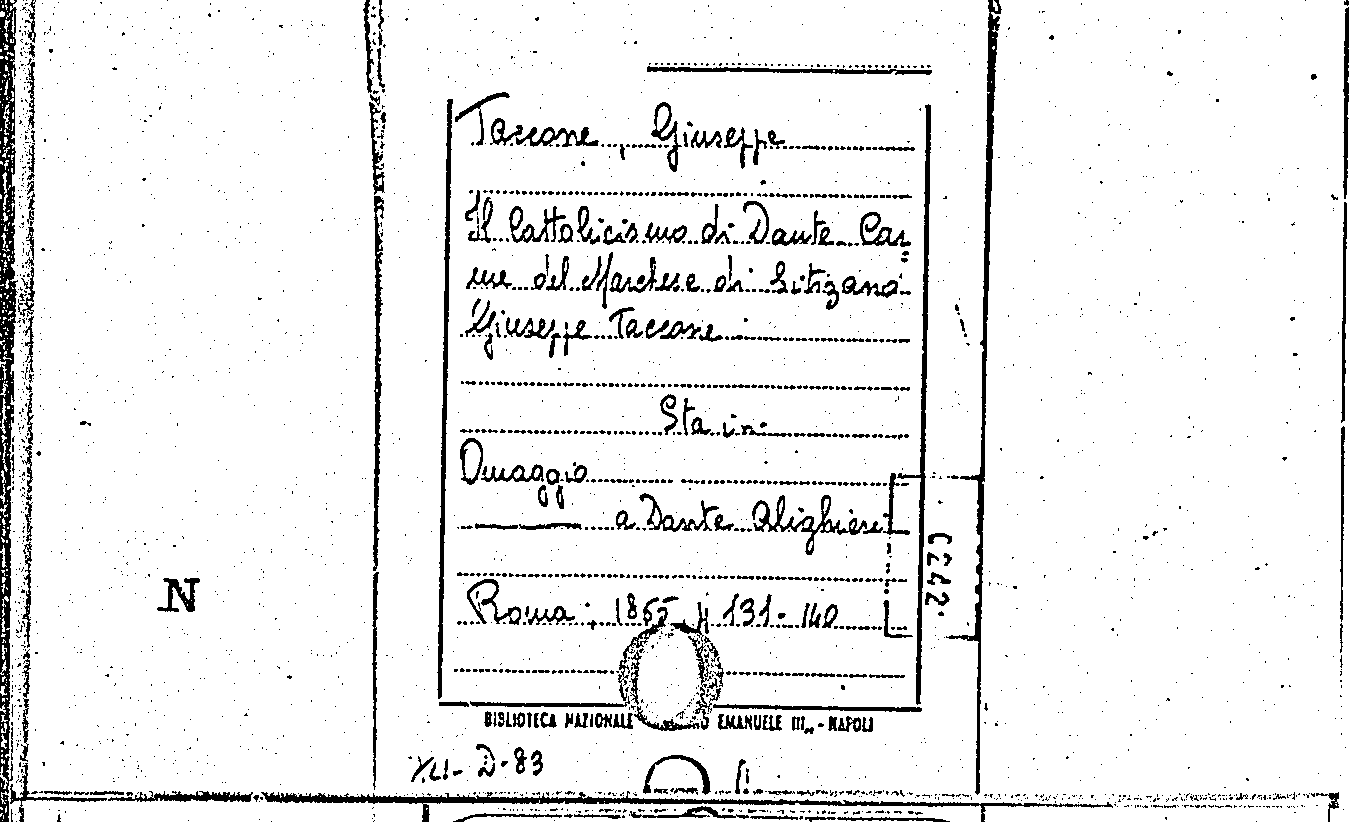 Taccone, Giuseppe
Il Cattolicismo di Dante. Car=
me del Marchese di Sitizano
Giuseppe Taccone.
Sta in:
Omaggio
a Dante Alighieri
Roma, 1865 p 131-140
BIBLIOTECA NAZIONALE EMANUELE III„ - NAPOLI
XLI- D-83
N
C242